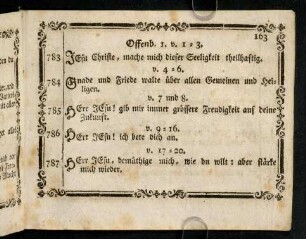 103
Offenb. 1. v. 1=3.
783 JEsu Christe, mache mich dieser Seeligkeit theilhaftig.
v. 4=6.
784 Gnade und Friede walte über allen Gemeinen und Hei-
ligen.
v. 7 und 8.
785 HErr JEsu! gib mir immer grössere Freudigkeit auf deine
Zukunft.
v. 9=16.
786 HErr JEsu! ich bete dich an.
v. 17=20.
787 HErr JEsu, demüthige mich, wie du wilt: aber stärke
mich wieder.